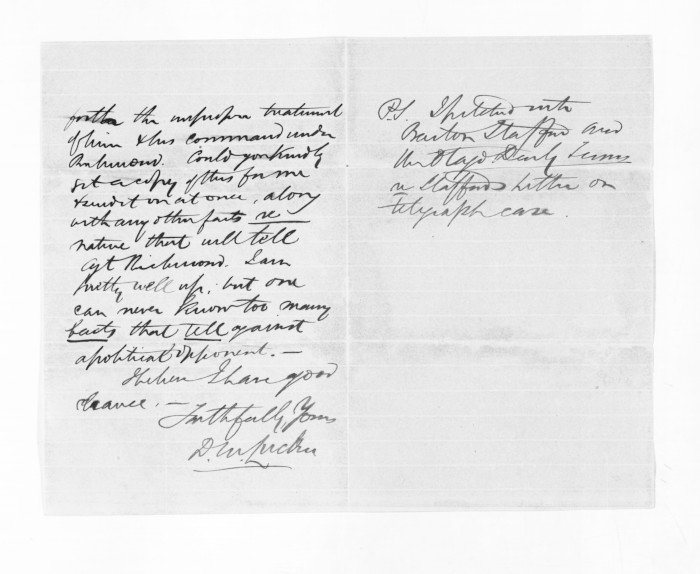 forth the improper treatment
of him & his command under
Richmond. Could you kindly
get a copy of this for me
& send it on at once, along
with any other facts re
native that will tell
agt Richmond. I am
pretty well up, but one
can never know too many
facts that tell against
a political opponent. —
I believe I have good
chance. —
Faithfully Yours
D. M.
P.S. I pitched into
Stafford and
the Otago Daily Times
re Staffords letter on
telegraph case.